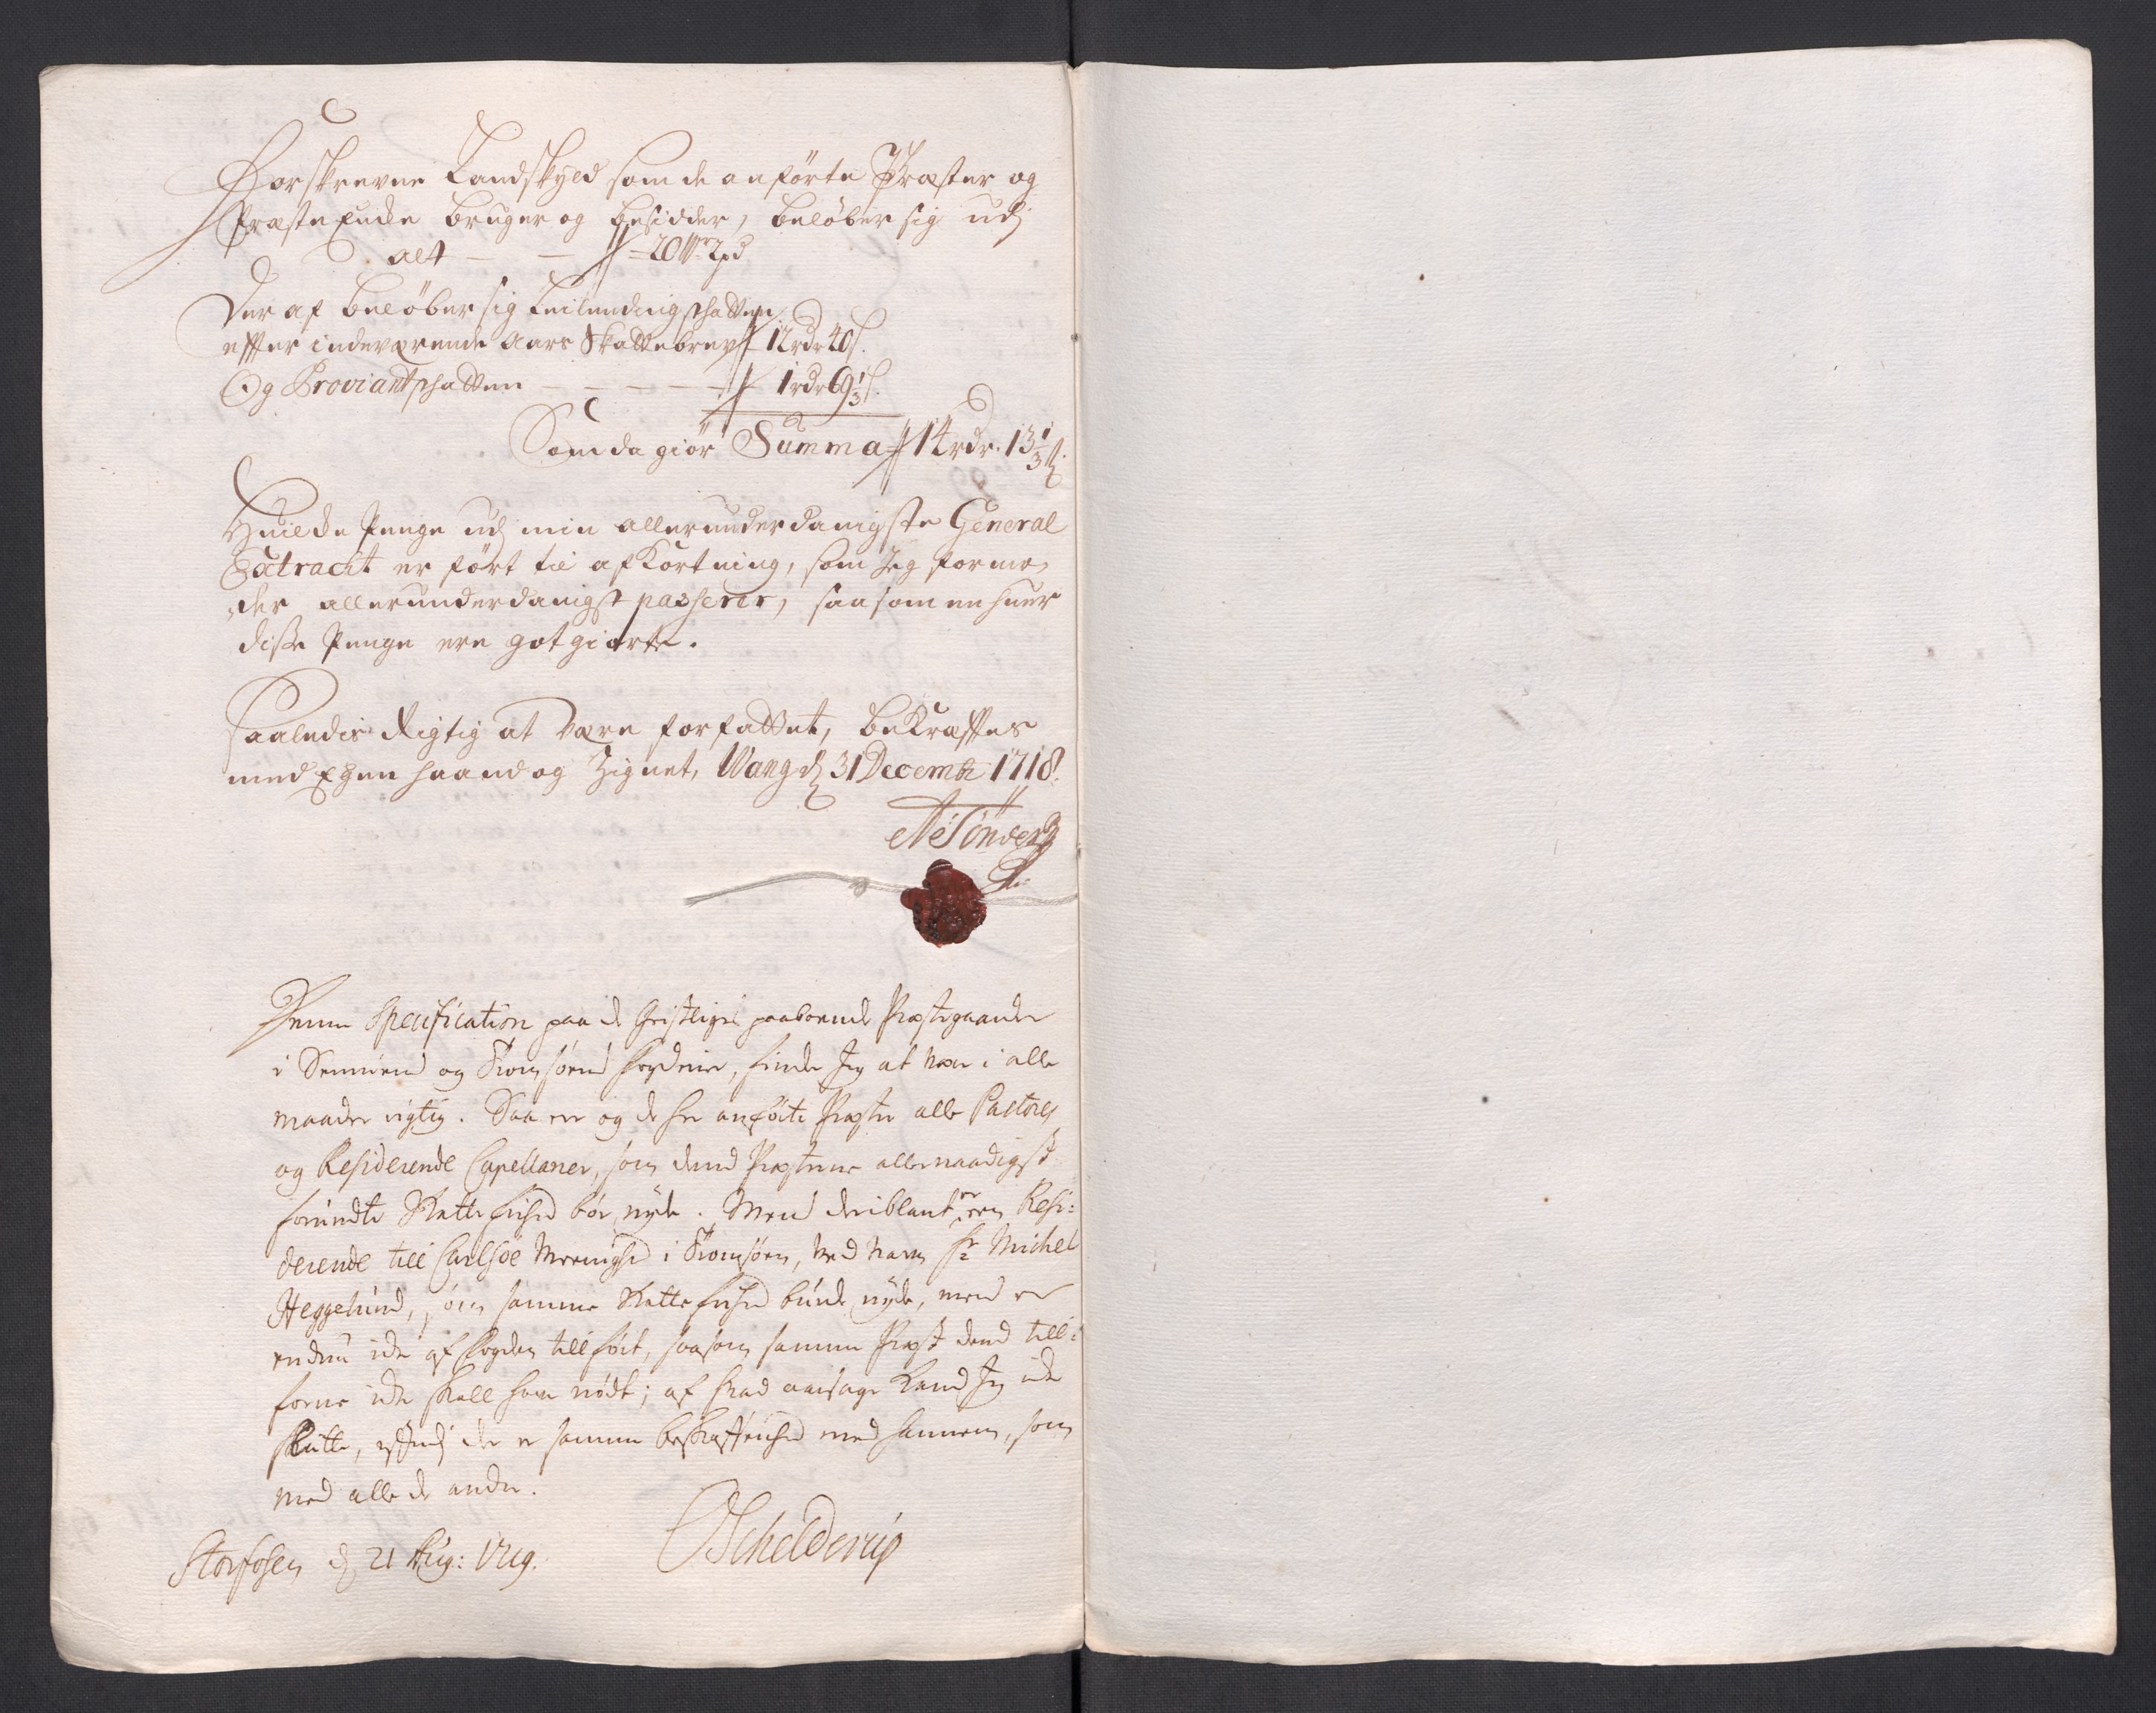 Forskrevne Landskyld som de anførte Præster og
Præste Enke bruger og besidder, beløber sig udj
alt — — 20 W 2 pd
Der af beløber sig Leilendingschatten
effter indeværende Aars Skattebrev 12 rdr 40 s.
Og Proviantschatten — — — — 1 rdr 69 1/3 s.
Som da giør Summa 14 rdr. 13 1/3 s.
Huilcke Penge udj min allerunderdanigste General
Extract er ført til afkortning, som Jeg formo,
der allerunderdanigst passerer, saasom en huer
disse Penge ere got giorte.
Saaledis Rigtig at være forfattet, bekræfftes
med Egen haand og Zignet, Wang d 31 Decembr 1718.
A Tønder
Denne Specification paa de Geistliges paaboende Præstegaarder
i Senniens og Tromsøens fogderier, finder Jeg at være i alle
maader rigtig. Saa er og de her anførte Præster alle Pastores
og Residerende Capellaner, som dend Præsterne allernaadigst
forundte Skatte frihed bør nyde. Mend deriblant er een Resi:
derende till Carlsøe Menighed i Tromsøen, ved Navn Hr Michel
Heggelund, som samme Skatte frihed burde nyde, mend er
endnu icke af fogden tillført, saasom samme Præst dend till:
forne icke skall have nødt; af hvad aarsage kand Jeg icke
skutte, effterdj der er samme beskaffenhed med hannem, som
med alle de andre.
Storfosen d 21 Aug: 1719.
O Schelderup